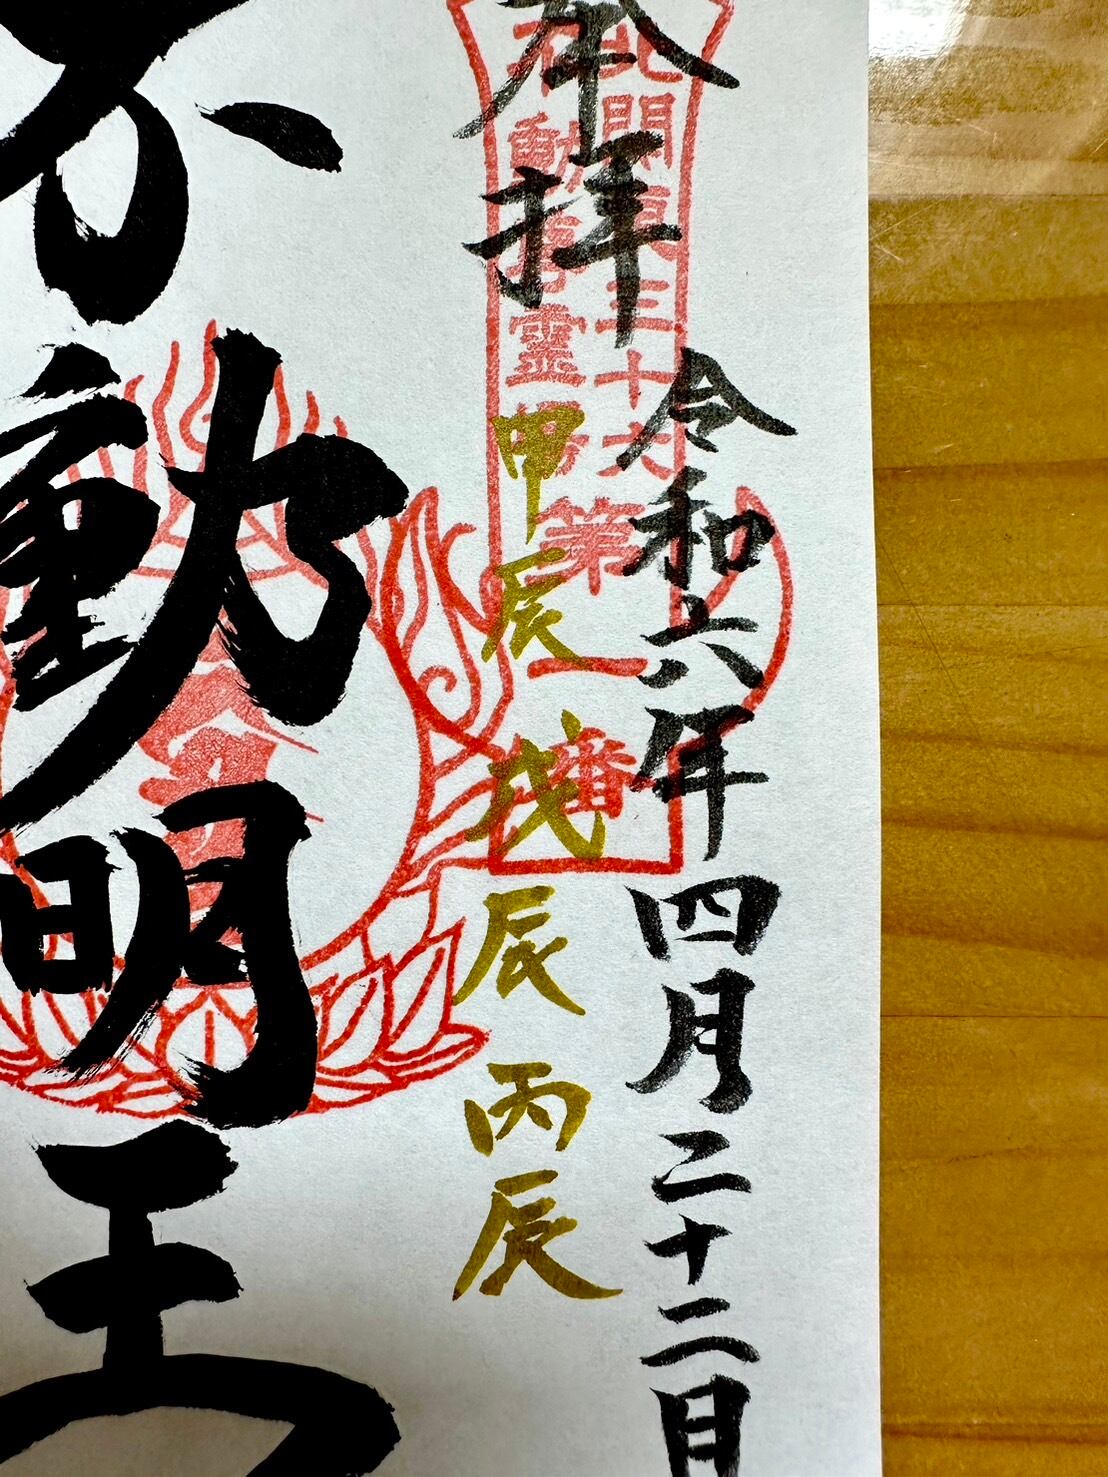 奉拝
令和六年四月二十二日
北関東三十六
不動尊霊場
第一番
甲辰 戊辰 丙辰
不動明王